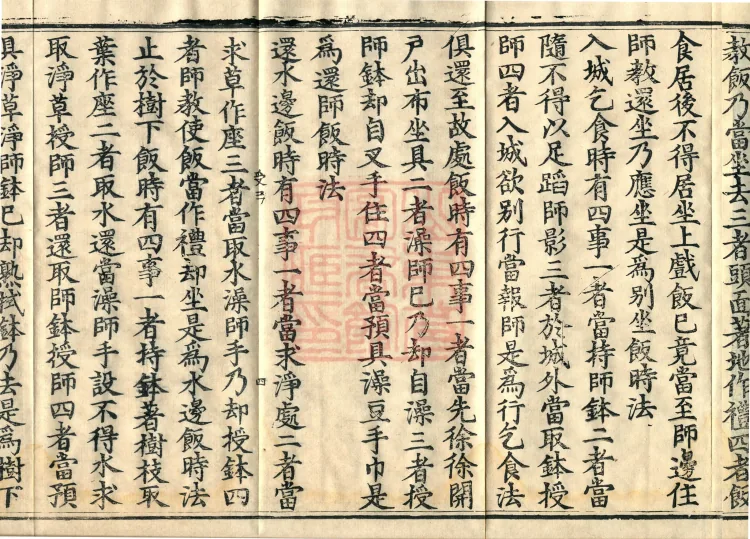 教飯乃當坐去三者頭面著地作禮四者飯
食居後不得居坐上戲飯已竟當至師邊住
師教還坐乃應坐是爲別坐飯時法
入城乞食時有四事一者當持師鉢二者當
隨不得以足蹈師影三者於城外當取鉢授
師四者入城欲別行當報師是爲行乞食法
俱還至故處飯時有四事一者當先徐徐開
戶出布坐具二者澡師已乃却自澡三者授
師鉢却自叉手住四者當預具澡豆手巾是
爲還師飯時法
還水邊飯時有四事一者當求淨處二者當
求草作座三者當取水澡師手乃却授鉢四
者師教使飯當作禮却坐是爲水邊飯時法
止於樹下飯時有四事一者持鉢著樹枝取
葉作座二者取水還當澡師手設不得水求
取淨草授師三者還取師鉢授師四者當預
具淨草淨師鉢已却熟拭鉢乃去是爲樹下